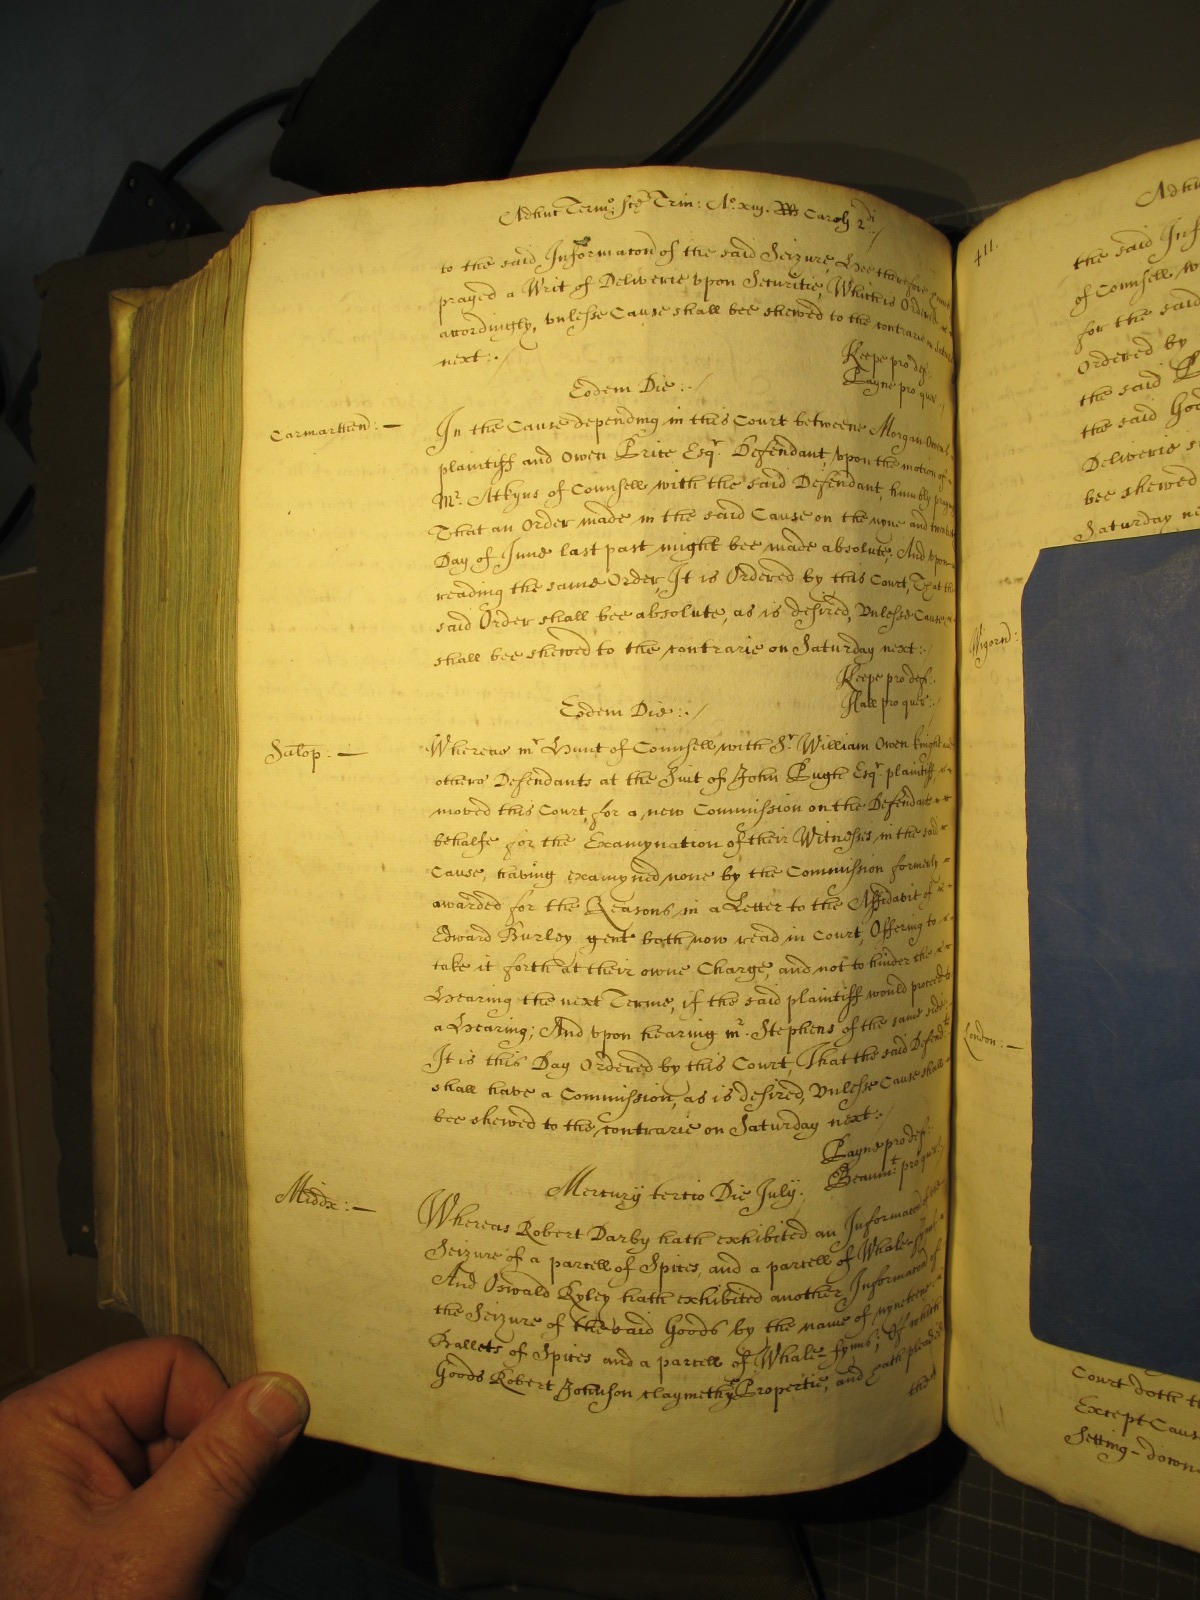 Adhuc Termo: scte Trin: Ao. xiij. RRs Carolj 2di:/
to the said Informacon of the said Seizure, Hee therefore
prayed a Writ of Deliverie vpon Securitie, Which is Ordered
accordingly, vnlesse Cause shall bee shewed to the contrarie on
next:./
Keepe pro def:.
Payne pro quer:./
Eodem Die:./
Carmarthen: —
In the Cause depending in this Court betweene Morgan Owens
plaintiff and Owen Price Esqr. Defendant, vpon the motion of
Mr. Atkyns of Counsell with the said Defendant, humbly praying
That an Order made in the said Cause on the nyne and twentieth
Day of June last past might bee made absolute; And vpon
reading the same Order, It is Ordered by this Court, That the
said Order shall bee absolute, as is desired, Vnlesse Cause
shall bee shewed to the contrarie on Saturday next:./
Keepe pro def:.
Hall pro quer:./
Eodem Die:./
Salop: —
Whereas mr. Hunt of Counsell with Sr. William Owen knight and
others Defendants at the Suit of John Pugh Esqr. plaintiff,
moved this Court, for a new Commission on the Defendants
behalfe for the Examynation of their Witnesses in the said
Cause, having examyned none by the Commission formerly
awarded for the Reasons in a Letter to the Affidavit of
Edward Burley gent both now read in Court, Offering to
take it forth at their owne Charge, and not to hinder the
Hearing the next Terme, if the said plaintiff would proceed to
a Hearing; And vpon hearing mr. Stephens of the same side
It is this Day Ordered by this Court, That the said Defendts
shall have a Commission, as is desired, Vnlesse Cause shall
bee shewed to the contrarie on Saturday next:./
Payne pro def:.
Beaumt. pro quer:.
Mercurij tertio Die July:
Middx: —
Whereas Robert Darby hath exhibited an Informacon of the
Seizure of a parcell of Spices, and a parcell of Whale-fynns
And Oswald Ryley hath exhibited another Informacon of
the Seizure of the said Goods by the name of nyneteene
Ballets of Spices and a parcell of Whale-fynns; Of which
Goods Robert Johnson claymeth ye Propertie, and hath pleaded
411.
the said Inf
of Counsell w
for the said
Ordered by
the said
the said Goo
Deliverie
bee shewed
Saturday ne
Wigorn:
London: —
Court doth th
Except Caus
Setting-down